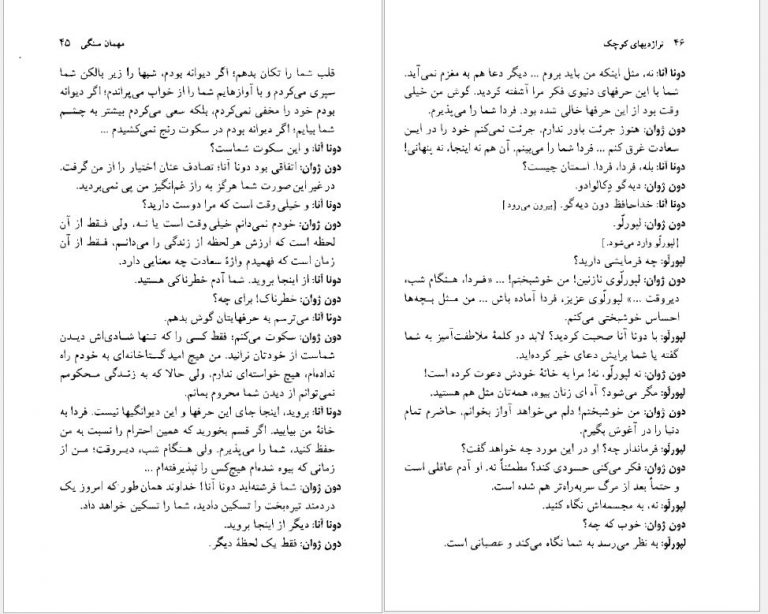 مهمان سنگی ۴۵
قلب شما را تکان بدهم؛ اگر دیوانه بودم، شبها را زیر بالکن شما
سپری می‌کردم و با آوازهایم شما را از خواب می‌پراندم؛ اگر دیوانه
بودم خود را مخفی نمی‌کردم، بلکه سعی می‌کردم بیشتر به چشم
شما بیایم؛ اگر دیوانه بودم در سکوت رنج نمی‌کشیدم ...
دونا آنا: و این سکوت شماست؟
دون ژوان: اتفاقی بود دونا آنا؛ تصادف عنان اختیار را از من گرفت.
در غیر این صورت شما هرگز به راز غم‌انگیز من پی نمی‌بردید.
دونا آنا: و خیلی وقت است که مرا دوست دارید؟
دون ژوان: خودم نمی‌دانم خیلی وقت است یا نه، ولی فقط از آن
لحظه است که ارزش هر لحظه از زندگی را می‌دانم، فقط از آن
زمان است که فهمیدم واژهٔ سعادت چه معنایی دارد.
دونا آنا: از اینجا بروید. شما آدم خطرناکی هستید.
دون ژوان: خطرناک! برای چه؟
دونا آنا: می‌ترسم به حرفهایتان گوش بدهم.
دون ژوان: سکوت می‌کنم؛ فقط کسی را که تنها شادی‌اش دیدن
شماست از خودتان نرانید. من هیچ امید گستاخانه‌ای به خودم راه
نداده‌ام، هیچ خواسته‌ای ندارم، ولی حالا که به زندگی محکومم
نمی‌توانم از دیدن شما محروم بمانم.
دونا آنا: بروید، اینجا جای این حرفها و این دیوانگیها نیست. فردا به
خانهٔ من بیایید. اگر قسم بخورید که همین احترام را نسبت به من
حفظ کنید، شما را می‌پذیرم. ولی هنگام شب، دیروقت؛ من از
زمانی که بیوه شده‌ام هیچ‌کس را نپذیرفته‌ام ...
دون ژوان: شما فرشته‌اید دونا آنا! خداوند همان طور که امروز یک
دردمند تیره‌بخت را تسکین دادید، شما را تسکین خواهد داد.
دونا آنا: دیگر از اینجا بروید.
دون ژوان: فقط یک لحظهٔ دیگر.
۴۶ تراژدیهای کوچک
دونا آنا: نه، مثل اینکه من باید بروم ... دیگر دعا هم به مغزم نمی‌آید.
شما با این حرفهای دنیوی فکر مرا آشفته کردید. گوش من خیلی
وقت بود از این حرفها خالی شده بود. فردا شما را می‌پذیرم.
دون ژوان: هنوز جرئت باور ندارم. جرئت نمی‌کنم خود را در این
سعادت غرق کنم ... فردا شما را می‌بینم، آن هم نه اینجا، نه پنهانی!
دونا آنا: بله، فردا، فردا. اسمتان چیست؟
دون ژوان: دیه‌گو دِکالوادو.
دونا آنا: خداحافظ دون دیه‌گو. [بیرون می‌رود]
دون ژوان: لپورلّو.
[لپورلّو وارد می‌شود.]
لپورلّو: چه فرمایشی دارید؟
دون ژوان: لپورلّوی نازنین! من خوشبختم! ... «فردا، هنگام شب،
دیروقت ...» لپورلّوی عزیز، فردا آماده باش ... من مثل بچه‌ها
احساس خوشبختی می‌کنم.
لپورلّو: با دونا آنا صحبت کردید؟ لابد دو کلمهٔ ملاطفت‌آمیز به شما
گفته یا شما برایش دعای خیر کرده‌اید.
دون ژوان: نه لپورلّو، نه! مرا به خانهٔ خودش دعوت کرده است!
لپورلّو: مگر می‌شود؟ آه ای زنان بیوه، همه‌تان مثل هم هستید.
دون ژوان: من خوشبختم! دلم می‌خواهد آواز بخوانم، حاضرم تمام
دنیا را در آغوش بگیرم.
لپورلّو: فرماندار چه؟ او در این مورد چه خواهد گفت؟
دون ژوان: فکر می‌کنی حسودی کند؟ مطمئناً نه. او آدم عاقلی است
و حتماً بعد از مرگ سربه‌راه‌تر هم شده است.
لپورلّو: نه، به مجسمه‌اش نگاه کنید.
دون ژوان: خوب که چه؟
لپورلّو: به نظر می‌رسد به شما نگاه می‌کند و عصبانی است.